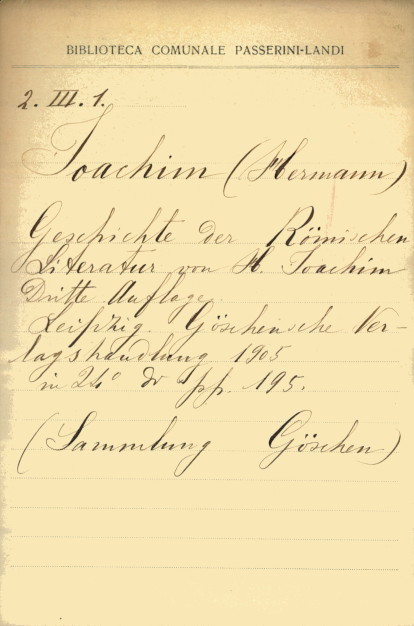 BIBLIOTECA COMUNALE PASSERINI-LANDI
2. III. 1.
Joachim (Hermann)
Geschichte der Römischen
Literatur von H. Joachim
Dritte Auflage.
Leipzig. Göschen'sche Ver-
lagshandlung 1905
in 24° di pp. 195.
(Sammlung Göschen)